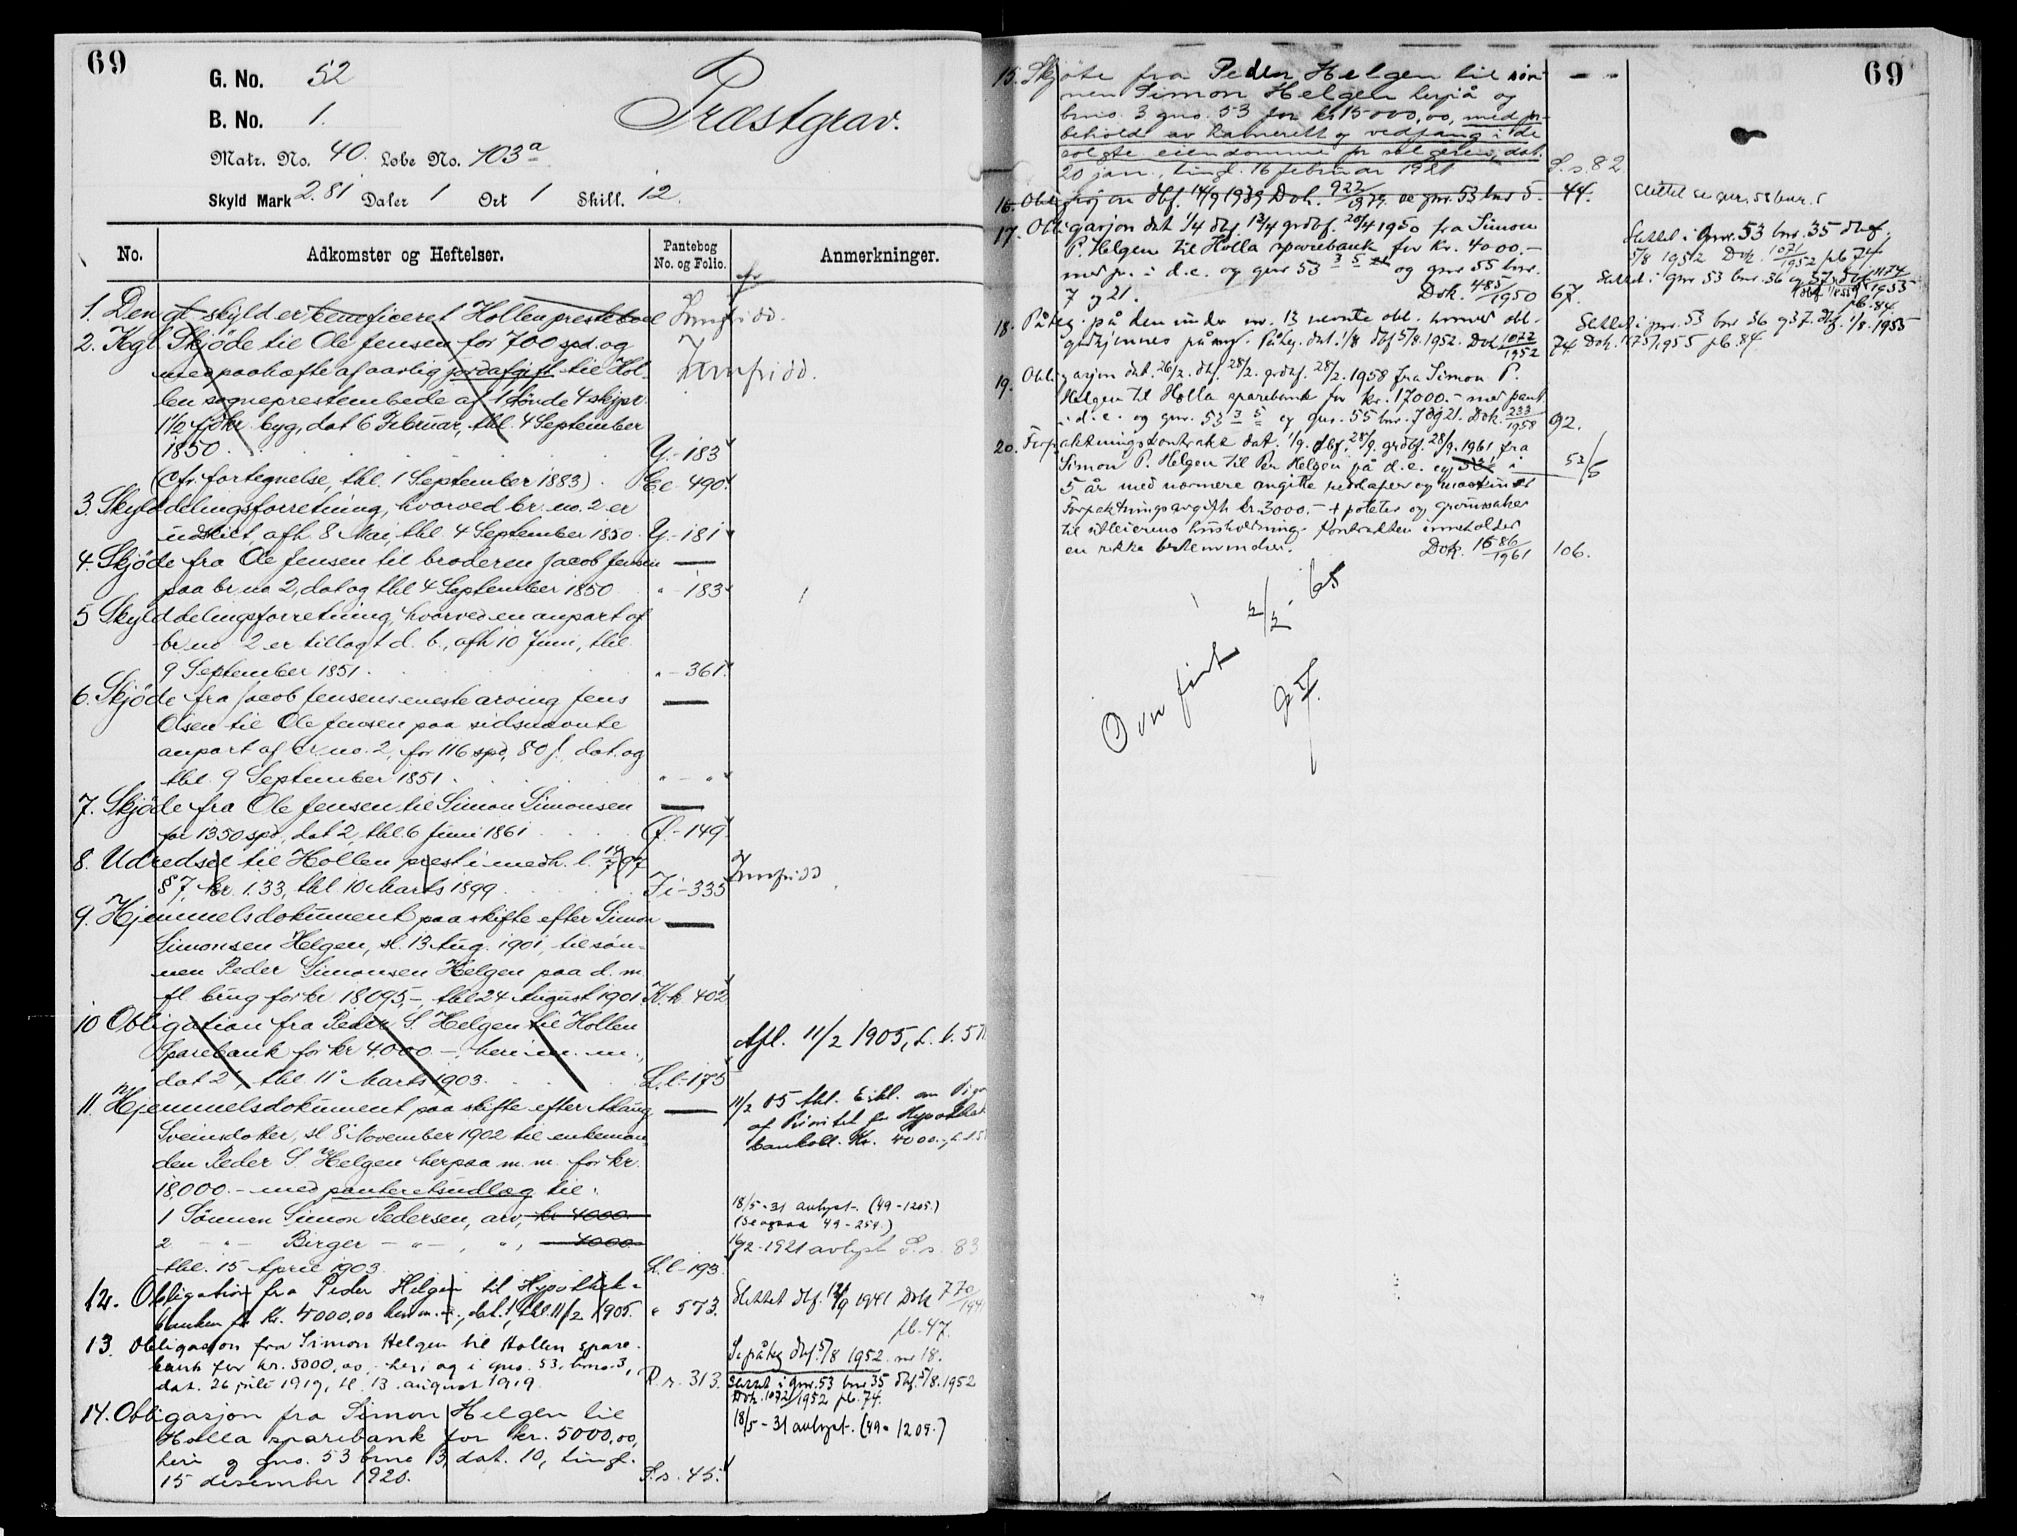 69
G. No. 52
B. No. 1.
Præstgrav.
Matr. No. 40. Lobe No. 103a
Skyld Mark 2.81 Daler 1 Ort 1 Skill. 12.
No. Adkomster og Heftelser. Pantebog No. og Folio. Anmerkninger.
1. Den gl. skyld er beneficeret Hollen prestebord
2. Kgl. Skjøde til Ole Jensen for 700 spd. og
med paahæfte af aarlig jordafgift til Hol-
len sogneprestembede af 1 tønde 4 skjpr.
1½ fdkr. byg, dat 6 Februar, thl. 4 September
1850. Y.-183
(Cfr. fortegnelse, thl. 1 September 1883). Ee 490.
3. Skylddelingsforretning, hvorved br. no. 2 er
udskilt, afh. 8 Mai, thl 4 September 1850. Y.-181
4. Skjøde fra Ole Jensen til broderen Jacob Jensen —
paa br. no 2, dat og thl 4 September 1850 " -183
5 Skylddelingsforretning, hvorved en anpart af
br. no 2 er tillagt d. b., afh 10 Juni, thl.
9 September 1851. " -361.
6. Skjøde fra Jacob Jensens eneste arving Jens —
Olsen til Ole Jensen paa sidsnævnte
anpart af br. no. 2, for 116 spd, 80 s. dat. og
thl. 9 September 1851. " - "
7. Skjøde fra Ole Jensen til Simon Simonsen —
for 1350 spd, dat 2, thl. 6 Juni 1861 -149
8. Udredsel til Hollen prest i medh. l. 97
§ 7, kr. 1.33, thl 10 Marts 1899. Ii-335
9. Hjemmelsdokument paa skifte efter Simon —
Simonsen Helgen, sl. 13 Aug. 1901, til søn-
nen Peder Simonsen Helgen paa d. m.
fl. brug for kr. 18095,-, thl 24 August 1901. K.k 402
10 Obligation fra Peder S. Helgen til Hollen
Sparebank for kr 4000.-, heri m. m., Afl. 11/2 1905, L. l. 57
dat 2, thl. 11 Marts 1903. L.l-175
11. Hjemmelsdokument paa skifte efter Aslaug —
Sveinsdatter, sl 8 November 1902 til enkeman-
den Peder S. Helgen herpaa m. m. for kr.
18,000.- med panteretsudlæg til:
1 Sønnen Simon Pedersen, arv, kr 4000
2 - " - Birger - " - , " , 4000
thl. 15 April 1903. L.l-193
11/2 05 thl. Erkl. om
af Prioritet for Hypothek
bankobl. Kr. 4000.-
18/5-31 avlyst. (49-1205.)
(Se ogsaa 49-254.)
16/2-1921 avlyst S.s. 83
12. Obligation fra Peder Helgen til Hypothek-
banken for Kr. 4000,00 heri m. m., dat. 1, thl. 11/2 1905. " 573.
Slettet dbf. 12/9 1941 Dok 770/1941
pb. 47.
13. Obligasjon fra Simon Helgen til Hollen spare-
bank for kr. 5000,00 - heri og i gno. 53, brno. 3,
dat. 26 juli 1919, tl. 13. august 1919. R.r. 313.
Se påteg. dbf. 5/8 1952. nr 18.
Slettet i gnr. 53 bnr 35 dbf. 5/8. 1952
Dok. 1072/1952 pb. 74.
14. Obligasjon fra Simon Helgen til
Holla sparebank for kr. 5000,00,
heri og gno. 53 brno 3, dat. 10, tingl.
15 desember 1920. S.s. 45.
18/5-31 avlyst. (49-1209.)
69
15. Skjøte fra Peder Helgen til søn-
nen Simon Helgen herpå og
brno. 3 gno. 53 for kr 15000,00, med for-
behold av kamerett og vedfang i de
solgte eiendomme for selgeren, dat.
20 jan., tingl. 16 februar 1921 S.s. 82
16. Obligasjon dbf. 14/9 1939 Dok. 922/1939. se gnr. 53 bnr 5. 44.
Slettet se gnr. 53 bnr. 5
17. Obligasjon dat 1/4 dbf. 12/4 grdbf. 20/4 1950 fra Simon
P. Helgen til Holla sparebank for kr. 4000.-
med pr. i d.e. og gnr 53 3 5 og gnr 55 bnr.
7 og 21. Dok. 485/1950 67.
Slettet i Gnr. 53 bnr. 35 dbf.
5/8 1952 Dok 1071/1952 pb 74
Slettet i gnr 53 bnr 36 og 37
1174/1955
pb. 84
18. Påteg. på den under nr. 13 nevnte obl.
påny. Påteg. dat. 1/8 dbf 5/8. 1952. Dok 1072/1952 74
Slettet i gnr. 53 bnr 36 og 37. dbf. 1/8. 1955
Dok. 1175/1955 pb. 84.
19. Obligasjon dat. 26/2. dbf. 28/2. grdbf. 28/2. 1958 fra Simon P.
Helgen til Holla sparebank for kr. 17000.- med pant
i d.e. og gnr. 53 3 5 og gnr. 55 bnr. 7 og 21. Dok. 233/1958 92.
20. Forpaktningskontrakt dat. 1/9. dbf. 28/9. grdbf. 28/9. 1961 fra
Simon P. Helgen til Per Helgen på d.e. og 53/5 i 53/5
5 år med nærmere angitte redskaper og maskiner
Forpaktningsavgift kr. 3000.- + poteter og grønnsaker
til utleierens husholdning. Kontrakten inneholder
en rekke bestemmelser. Dok. 1686/1961 106.
Overført 2/2-65